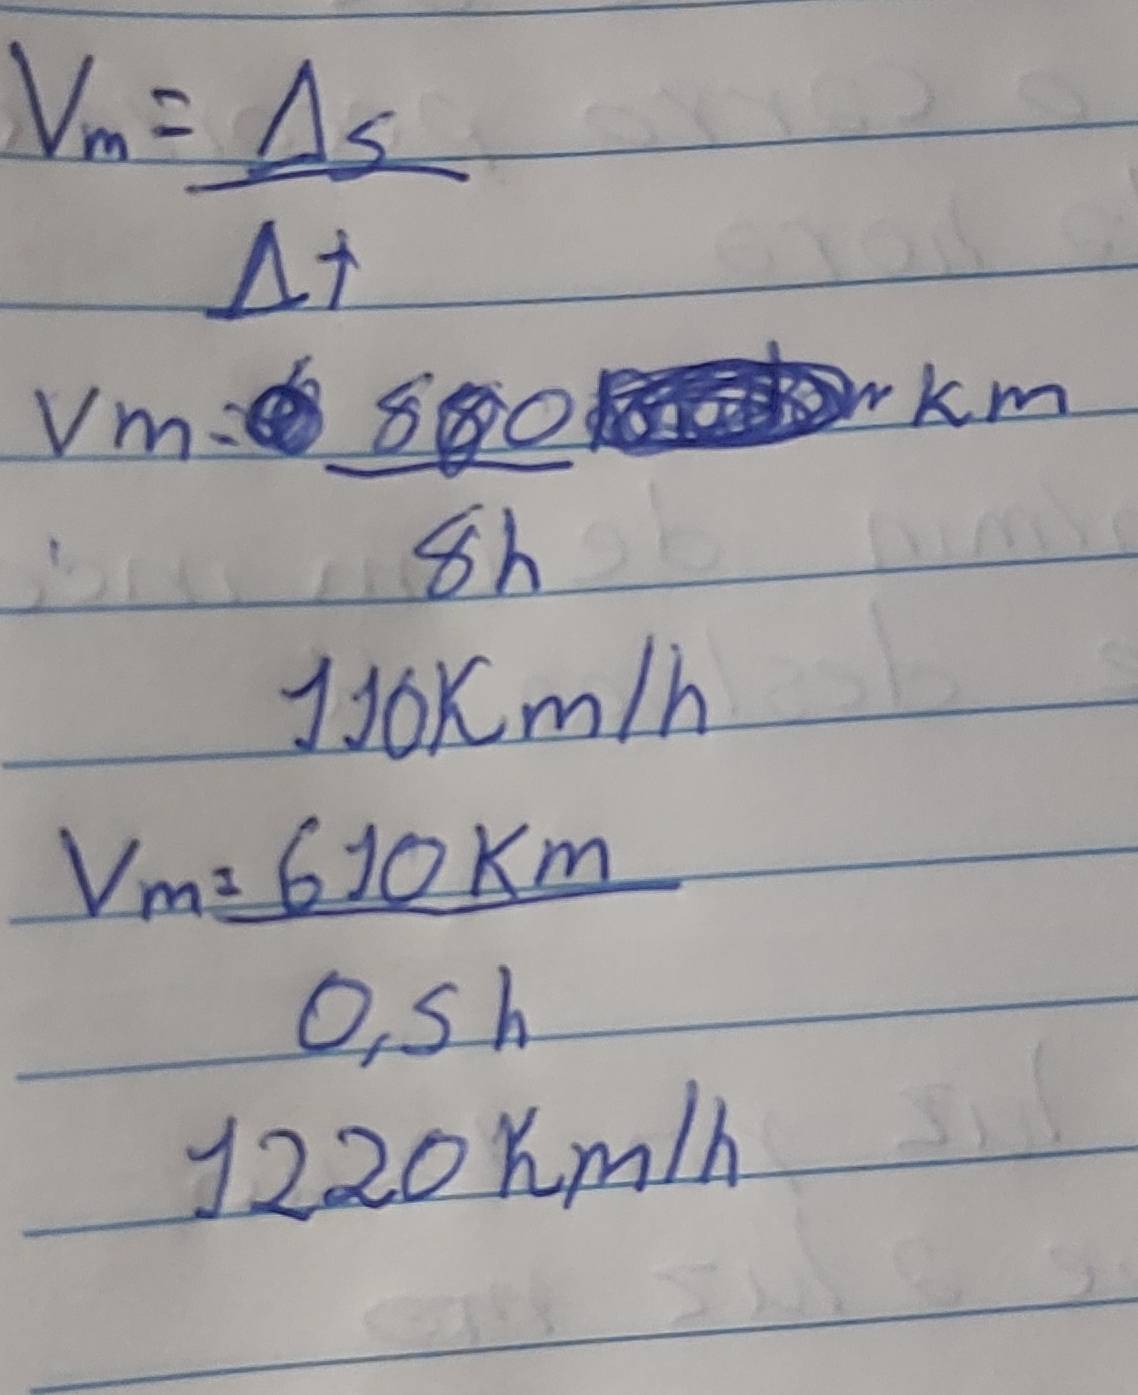 Vm = Δs
Δt
Vm = 880 km
8h
110Km/h
Vm = 610 Km
0,5h
1220 Km/h